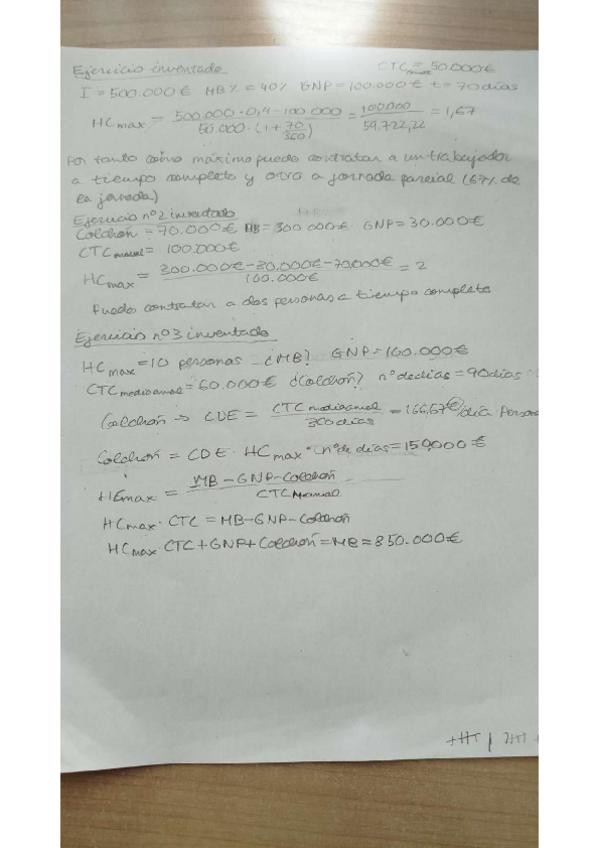 Ejercicio inventado CTC anual = 50.000€
I = 500.000 € MB% = 40% GNP = 100.000 € t = 70 días
HC max = 500.000 · 0,4 - 100.000 / 50.000 · (1 + 70/360) = 100.000 / 59.722,22 = 1,67
Por tanto como máximo puedo contratar a un trabajador
a tiempo completo y otro a jornada parcial (67% de
la jornada)
Ejercicio nº 2 inventado
Colchón = 70.000 € MB = 300.000€ GNP = 30.000€
CTC anual = 100.000€
HC max = 300.000€ - 30.000€ - 70.000€ / 100.000€ = 2
Puedo contratar a dos personas a tiempo completo
Ejercicio nº 3 inventado
HC max = 10 personas ¿MB? GNP = 100.000€
CTC medio anual = 60.000€ ¿Colchón? nº de días = 90 días
Colchón → CDE = CTC medio anual / 360 días = 166,67€/día persona
Colchón = CDE · HC max · nº de días = 150,000 €
HC max = MB - GNP - Colchón / CTC anual
HC max · CTC = MB - GNP - Colchón
HC max · CTC + GNP + Colchón = MB = 850.000€